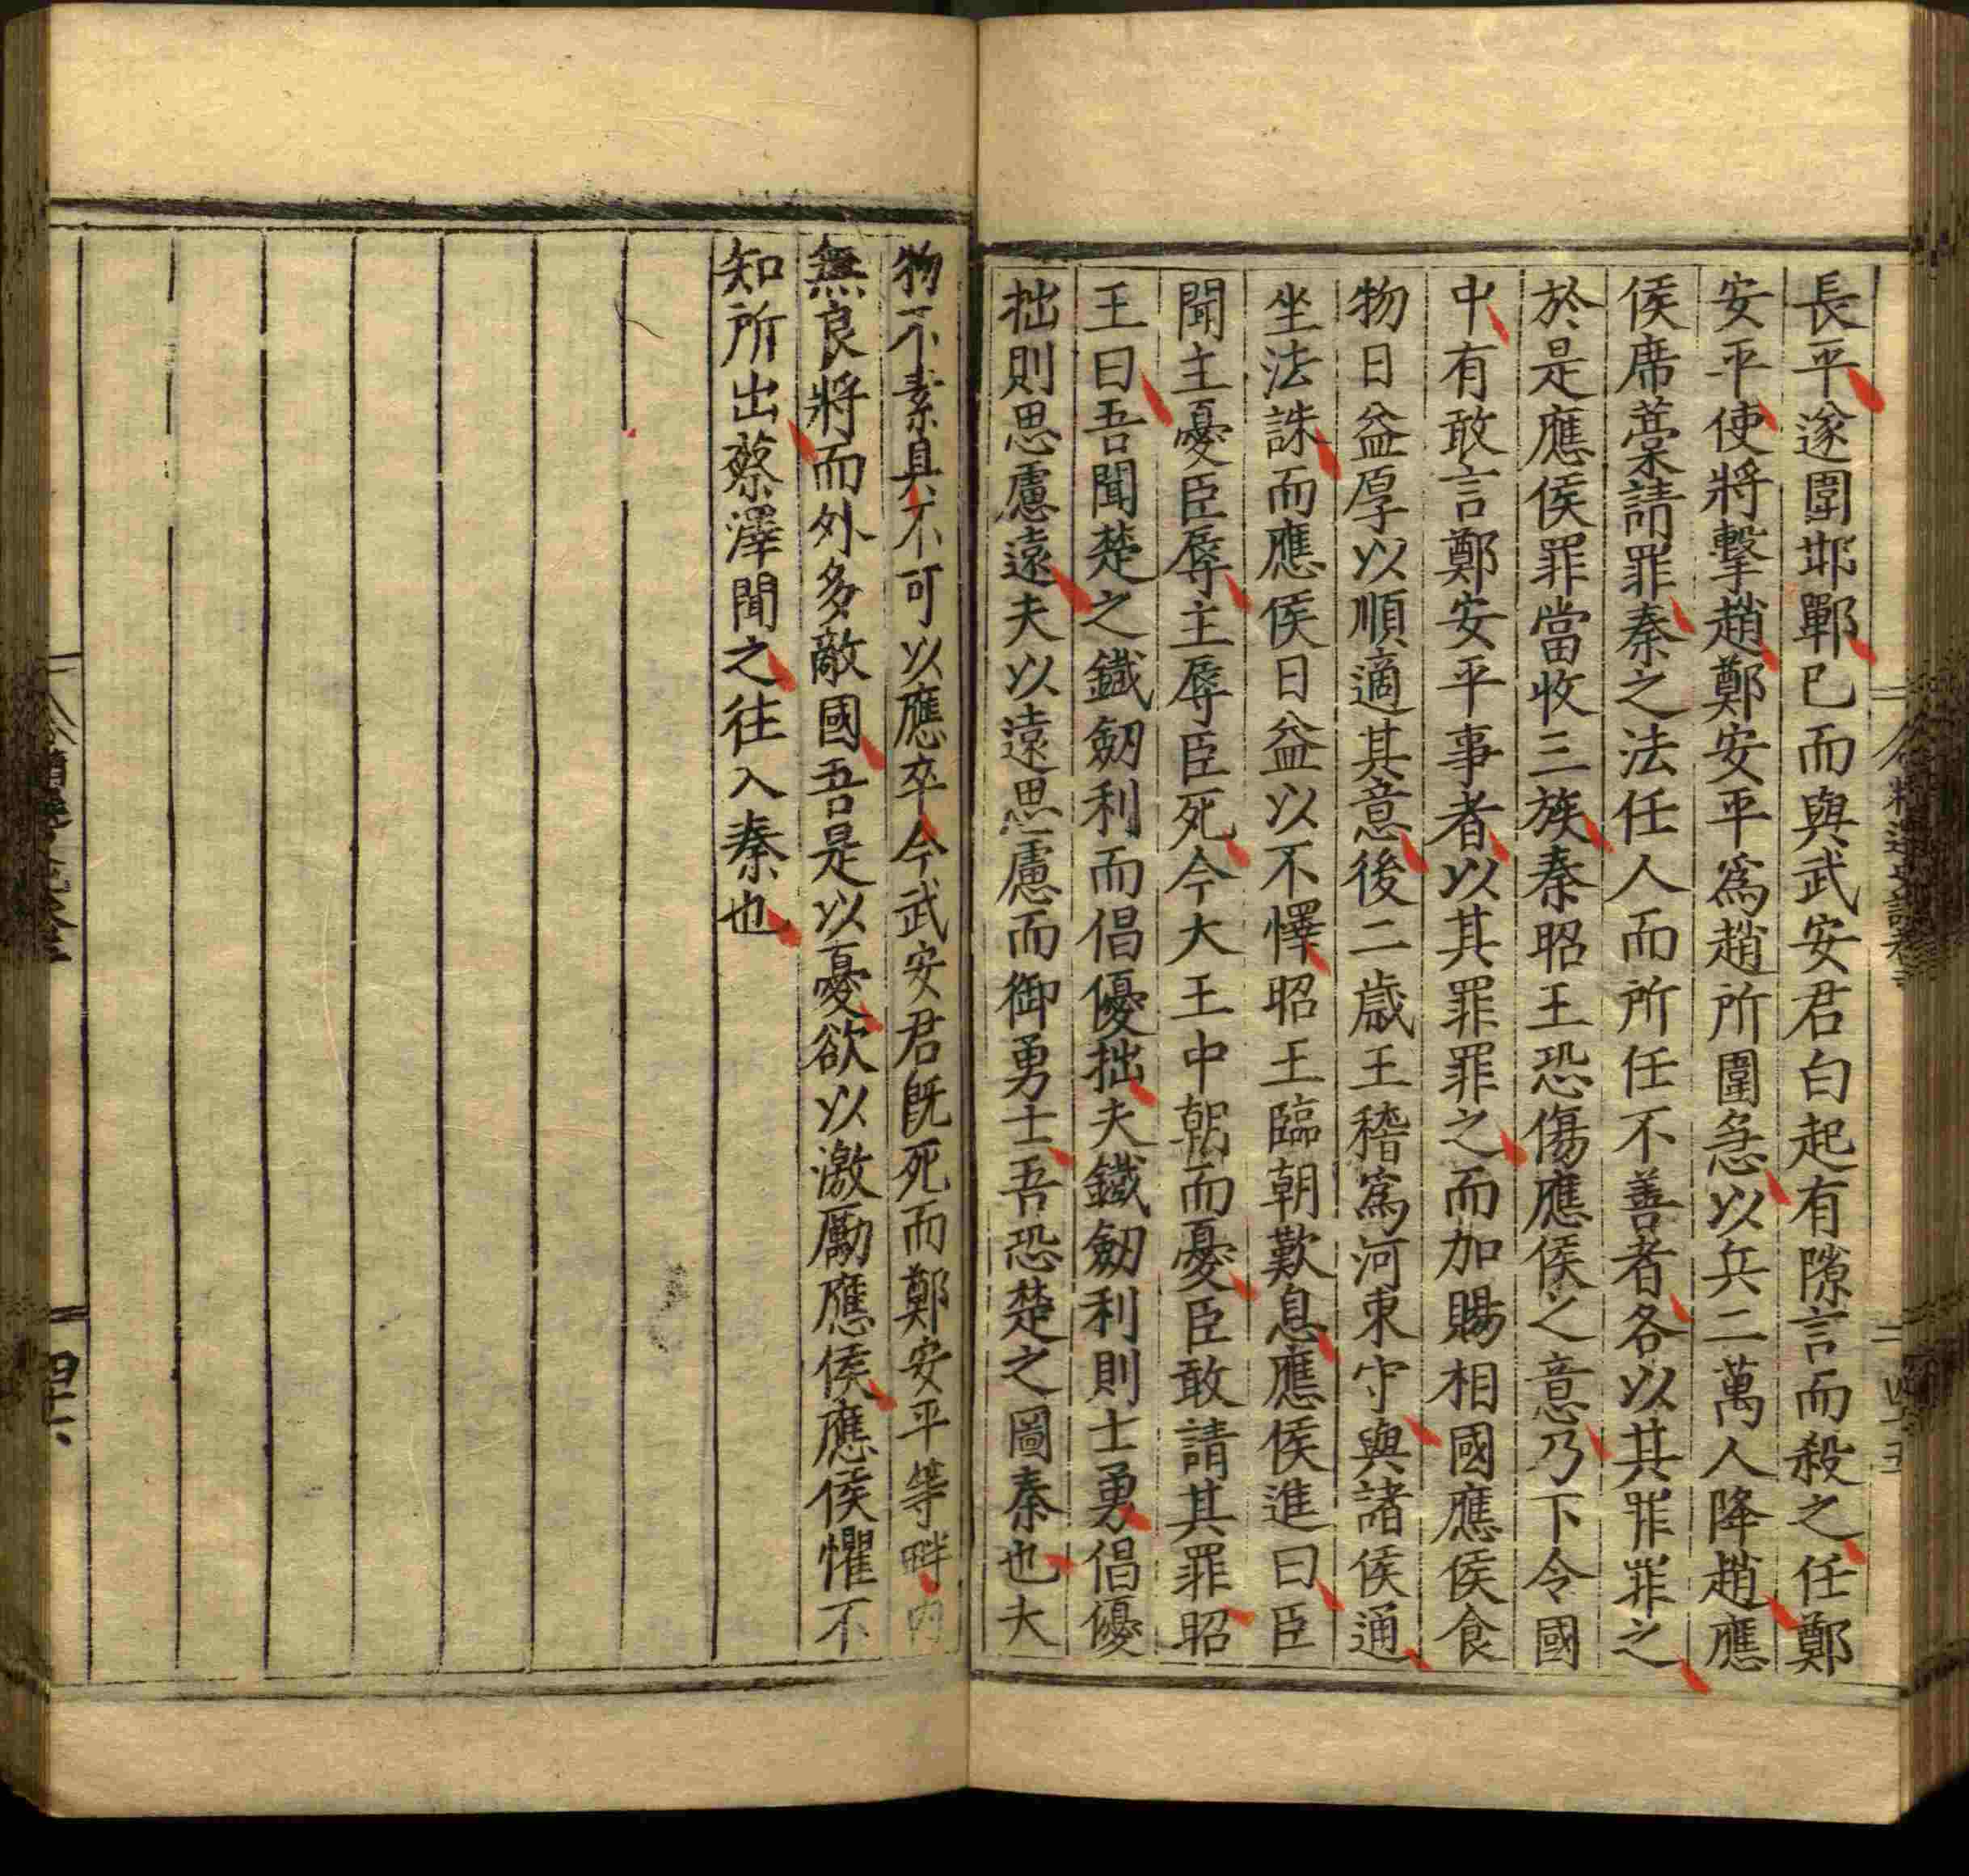 長平遂圍邯鄲已而與武安君白起有隙言而殺之任鄭
安平使將擊趙鄭安平爲趙所圍急以兵二萬人降趙應
侯席藁請罪秦之法任人而所任不善者各以其罪罪之
於是應侯罪當收三族秦昭王恐傷應侯之意乃下令國
中有敢言鄭安平事者以其罪罪之而加賜相國應侯食
物日益厚以順適其意後二歲王稽爲河東守與諸侯通
坐法誅而應侯日益以不懌昭王臨朝歎息應侯進曰臣
聞主憂臣辱主辱臣死今大王中朝而憂臣敢請其罪昭
王曰吾聞楚之鐵劒利而倡優拙夫鐵劒利則士勇倡優
拙則思慮遠夫以遠思慮而御勇士吾恐楚之圖秦也夫
物不素具不可以應卒今武安君旣死而鄭安平等畔内
無良將而外多敵國吾是以憂欲以激勵應侯應侯懼不
知所出蔡澤聞之往入秦也
四十六